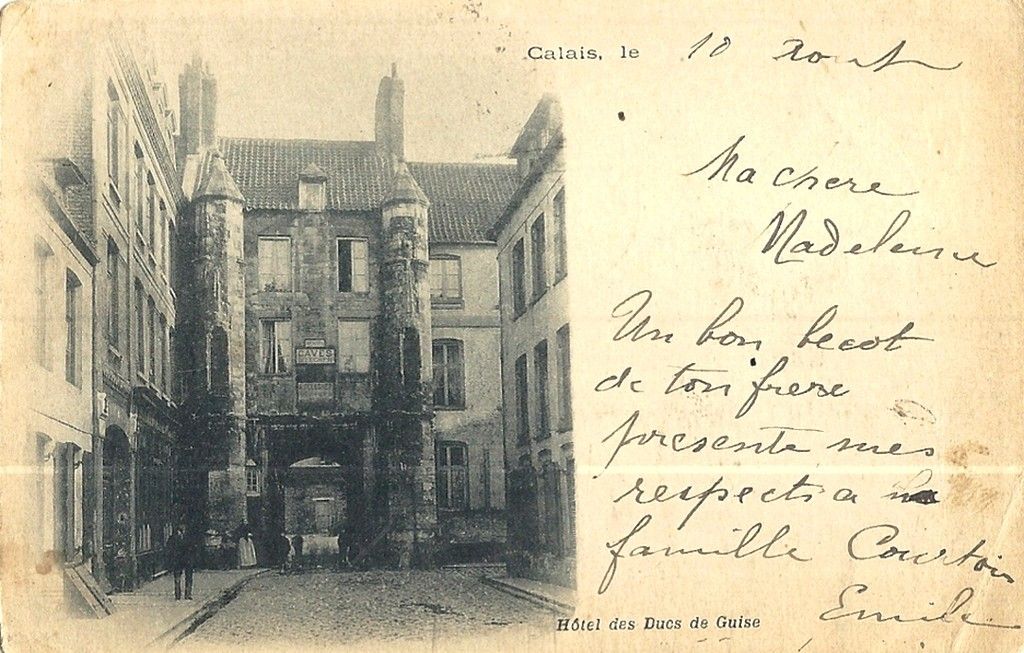 Calais, le 10 Aout
Ma chere
Madeleine
Un bon becot
de ton frere
presente mes
respects a la
famille Courtois
Emile
CAVES
Hôtel des Ducs de Guise